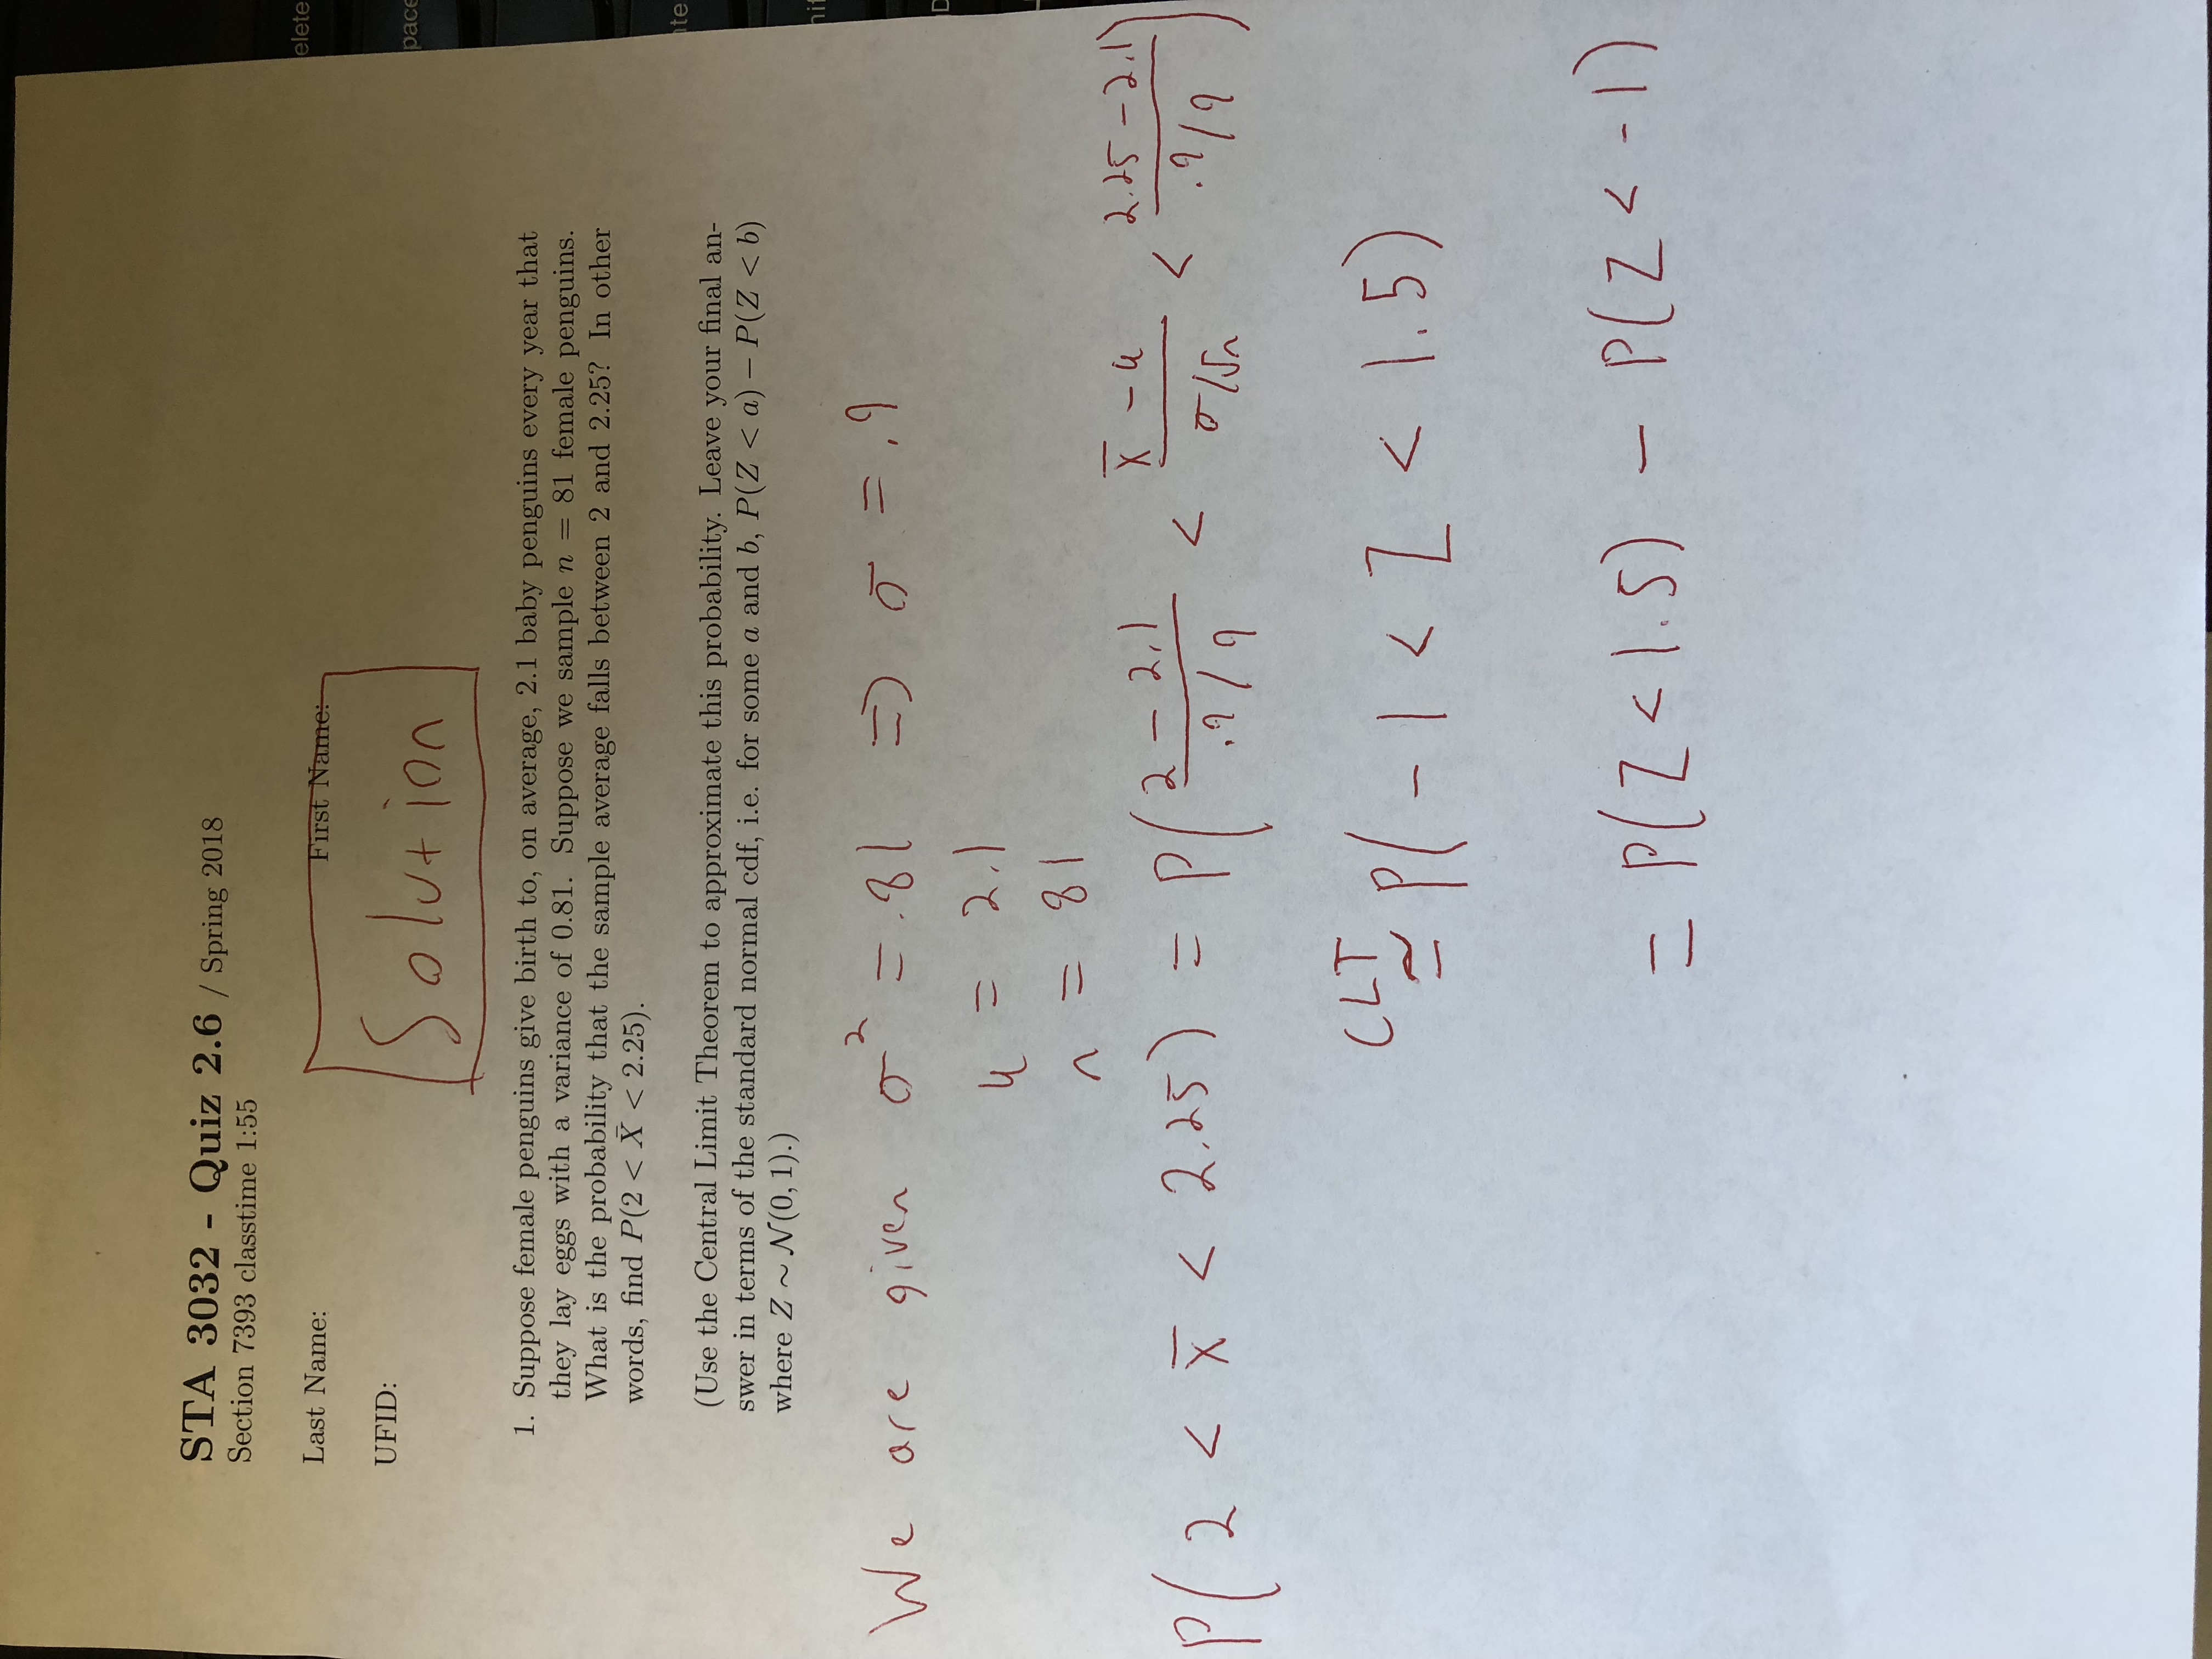 STA 3032 - Quiz 2.6 / Spring 2018
Section 7393 classtime 1:55
Last Name: First Name:
UFID:
Solution
1. Suppose female penguins give birth to, on average, 2.1 baby penguins every year that
they lay eggs with a variance of 0.81. Suppose we sample n = 81 female penguins.
What is the probability that the sample average falls between 2 and 2.25? In other
words, find P(2 < X̄ < 2.25).
(Use the Central Limit Theorem to approximate this probability. Leave your final an-
swer in terms of the standard normal cdf, i.e. for some a and b, P(Z < a) − P(Z < b)
where Z ∼ N(0, 1).)
We are given σ² = .81 ⇒ σ = .9
μ = 2.1
n = 81
P(2 < x̄ < 2.25) = P((2 − 2.1)/(.9/9) < (x̄ − μ)/(σ/√n) < (2.25 − 2.1)/(.9/9))
CLT
≅ P(-1 < Z < 1.5)
= P(Z < 1.5) − P(Z < -1)
elete
pace